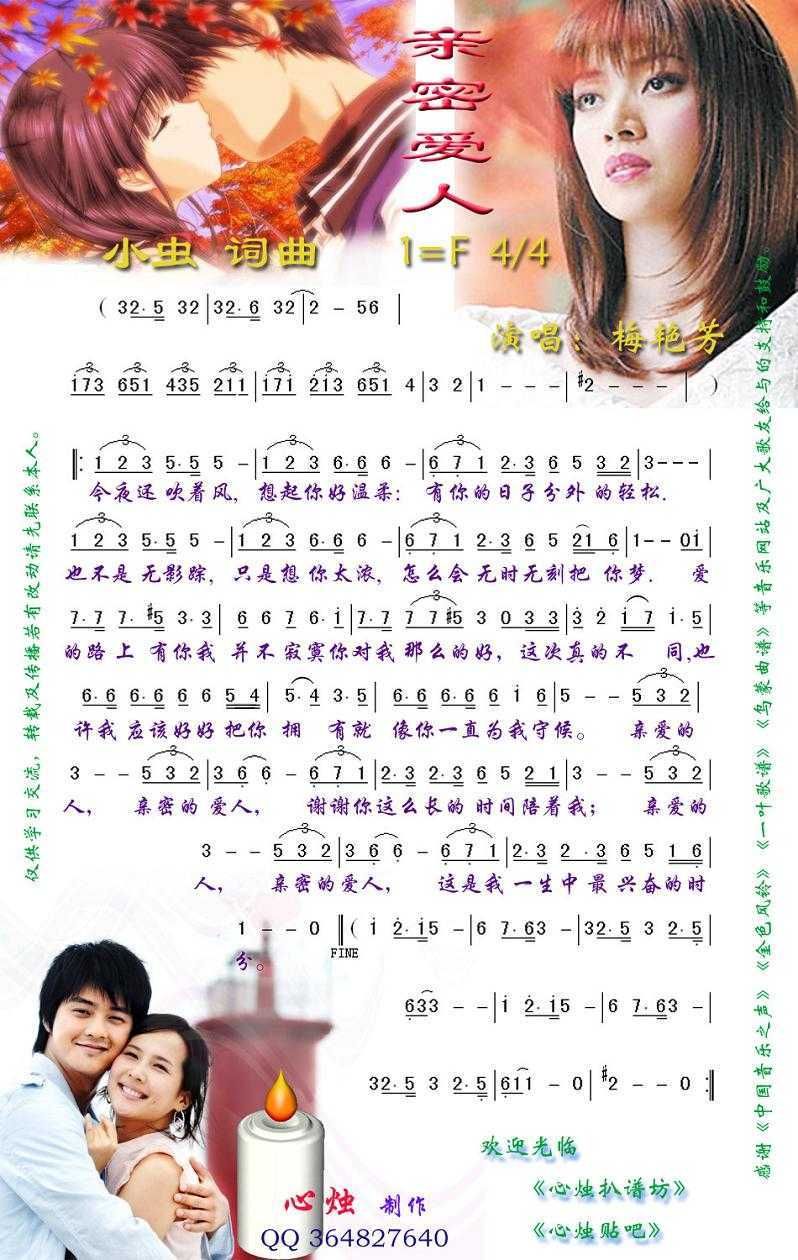 亲密爱人
小虫 词曲 1=F 4/4
演唱：梅艳芳
( 32·5 32 | 32·6 32 | 2 - 56 |
173 651 435 211 | 171 213 651 4 | 3 2 | 1 - - - | #2 - - - | )
3 3 3
‖: 1 2 3 5·5 5 - | 1 2 3 6·6 6 - | 6 7 1 2·3 6 5 32 | 3 - - - |
今夜还 吹着风, 想起你好温柔: 有你的日子分外的轻松.
1 2 3 5·5 5 - | 1 2 3 6·6 - | 6 7 1 2·3 6 5 21 6 | 1 - - 01 |
也不是 无影踪, 只是想 你太浓, 怎么会 无时无刻把 你梦. 爱
7·7 7·#5 3·3 | 6 6 7 6·1 | 7·7 7 7 #5 3 0 33 | 3 2 1 7 1·5 |
的路上 有你我 并不寂寞你对我那么的好, 这次真的不 同,也
6·6 6·6 6 6 54 | 5·4 3·5 | 6·6 6·6 6 1 6 | 5 - - 5 3 2 |
许我 应该好好 把你 拥 有就 像你一直为我守候。 亲爱的
3 - - 5 3 2 | 3 6 6 - 6 7 1 | 2·3 2·3 6 5 21 | 3 - - 5 3 2 |
人, 亲密的 爱人, 谢谢你这么长的 时间陪着我; 亲爱的
3 - - 5 3 2 | 3 6 6 - 6 7 1 | 2·3 2·3 6 5 1 6 |
人, 亲密的爱人, 这是我 一生中 最 兴奋的时
1 - - 0 ‖ ( 1 2·15 - | 6 7·63 - | 32·5 3 2·5 |
分。 FINE
633 - - | 1 2·15 - | 6 7·63 - |
32·5 3 2·5 | 611 - 0 | #2 - - 0 :‖
欢迎光临
《心烛扒谱坊》
《心烛贴吧》
心烛 制作
QQ 364827640
仅供学习交流, 转载及传播若有改动请先联系本人。
感谢《中国音乐之声》《金色风铃》《一叶歌谱》《乌蒙曲谱》等音乐网站及广大歌友给与的支持和鼓励